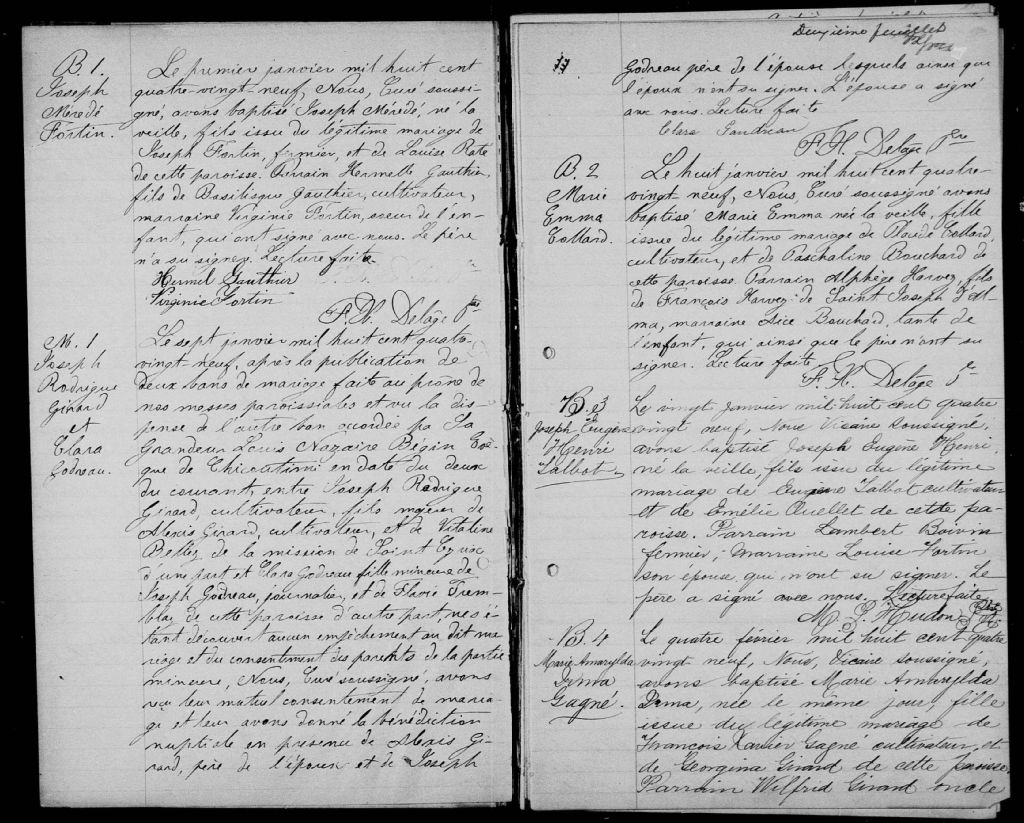 B. 1.
Joseph
Mérédé
Fortin.
Le premier janvier mil huit cent
quatre-vingt-neuf, Nous, Curé soussi-
gné, avons baptisé Joseph Mérédé, né la
veille, fils issu du légitime mariage de
Joseph Fortin, fermier, et de Louise Rate
de cette paroisse. Parrain Hermelle Gauthier,
fils de Basilisque Gauthier, cultivateur,
marraine Virginie Fortin, soeur de l'en-
fant, qui ont signé avec nous. Le père
n'a su signer. Lecture faite
Hermel Gauthier
Virginie Fortin
F. X. Delâge Ptre
M. 1
Joseph
Rodrigue
Girard
et
Clara
Godreau.
Le sept janvier mil huit cent quatre-
vingt-neuf, après la publication de
deux bans de mariage faite au prône de
nos messes paroissiales et vu la dis-
pense de l'autre ban accordée pa Sa
Grandeur Louis Nazaire Bégin Evê-
que de Chicoutimi en date du deux
du courant, entre Joseph Rodrigue
Girard, cultivateur, fils majeur de
Alexis Girard, cultivateur, et de Vitaline
de la mission de Saint Cyriac
d'une part et Clara Godreau fille mineure de
Joseph Godreau, journalier, et de Flavie Trem-
blay de cette paroisse d'autre part, ne s'é-
tant découvert aucun empêchement au dit ma-
riage et du consentement des parents de la partie
mineure, Nous, Curé soussigné, avons
reçu leur mutuel consentement de maria-
ge et leur avons donné la bénédiction
nuptiale en présence de Alexis Gi-
rard, père de l'époux et de Joseph
Deuxième feuillet
Godreau père de l'épouse lesquels ainsi que
l'époux n'ont su signer. L'épouse a signé
avec nous. Lecture faite
Clara Gaudreau
F. X. Delâge Ptre
B. 2
Marie
Emma
Collard.
Le huit janvier mil huit cent quatre-
vingt-neuf, Nous, Curé soussigné avons
baptisé Marie Emma née la veille, fille
issue du légitime mariage de Collard,
cultivateur, et de Paschaline Bouchard de
cette paroisse. Parrain Alphège Harvey, fils
de François Harvey de Saint Joseph d'Al-
ma, marraine Alice Bouchard, tante de
l'enfant, qui ainsi que le père n'ont su
signer. Lecture faite
F. X. Delâge Ptre
B. 3
Joseph Eugène
Henri
Talbot
Le vingt janvier mil huit cent quatre
vingt neuf, Nous Vicaire soussigné,
avons baptisé Joseph Eugène Henri,
né la veille, fils issu du légitime
mariage de Eugène Talbot cultivateur
et de Emélie Ouellet de cette pa-
roisse. Parrain Lambert Boivin
fermier, Marraine Louise Fortin
son épouse qui n'ont su signer. Le
père a signé avec nous. Lecture faite
Hudon Ptre
B. 4
Marie Amarylda
Irma
Gagné.
Le quatre février mil huit cent quatre
vingt neuf, Nous, Vicaire soussigné,
avons baptisé Marie Amarylda
Irma, née le même jour, fille
issue du légitime mariage de
François Xavier Gagné cultivateur, et
de Georgina Girard de cette paroisse.
Parrain Wilfrid Girard oncle